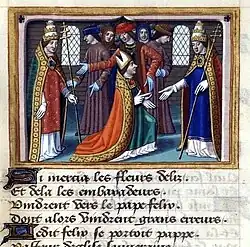 Si mercia les fleurs deliz
Et dela les embaxadeurs
Vindrent vers le pape felix
Dont alors vindrent grans erreurs
Ledit felix se portoit pappe